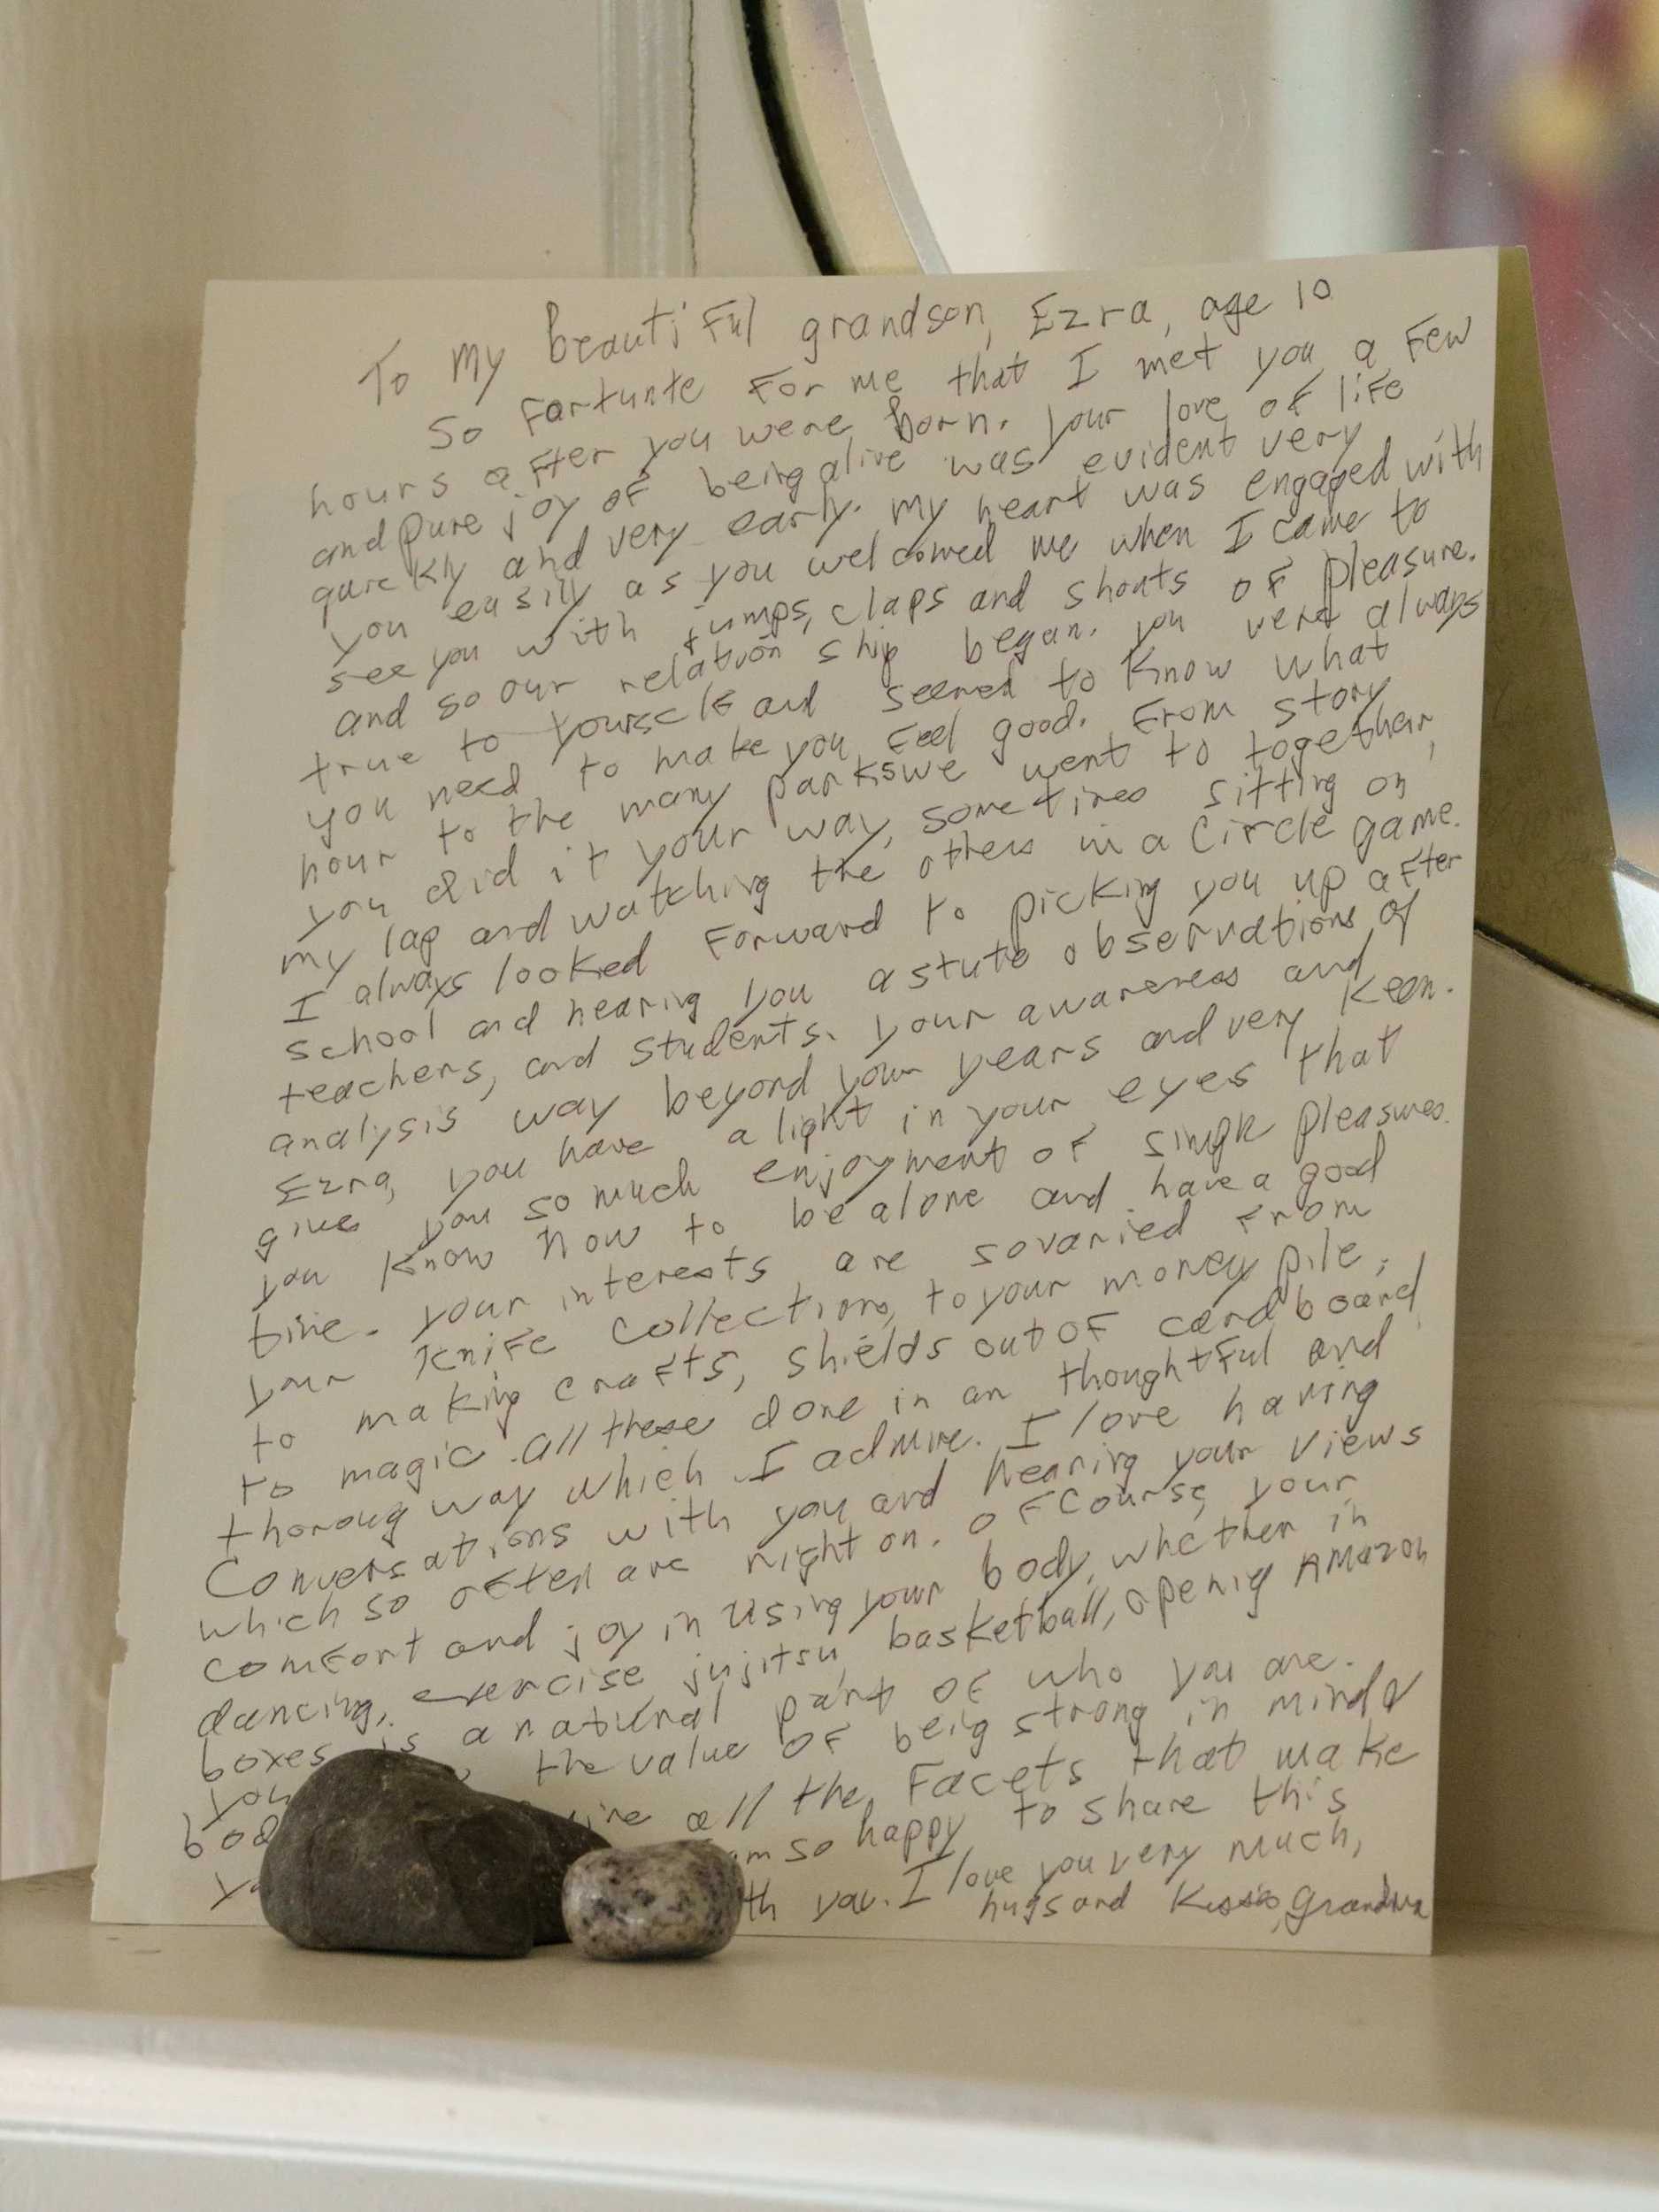 To my beautiful grandson, Ezra, age 10
So fortunte for me that I met you a few
hours after you were born. Your love of life
and pure joy of being alive was evident very
quickly and very early. my heart was engaged with
you easily as you welcomed me when I came to
see you with jumps, claps and shouts of pleasure.
and so our relation ship began. you were always
true to yourself and seemed to know what
you need to make you feel good. From story
hour to the many parks we went to together,
you did it your way, sometimes sitting on
my lap and watching the others in a circle game.
I always looked forward to picking you up after
school and hearing you astute observations of
teachers, and students. your awareness and
analysis way beyond your years and very keen.
Ezra, you have a light in your eyes that
gives you so much enjoyment of simple pleasures.
you know how to be alone and have a good
time. your interests are so varied from
your knife collections, to your money pile,
to making crafts, shields out of cardboard
to magic. all these done in an thoughtful and
thoroug way which I admire. I love having
conversations with you and hearing your views
which so often are right on. of course, your
comfort and joy in using your body, whether in
dancing, exercise jujitsu basketball, openig Amazon
boxes is a natural part of who you are.
you the value of beig strong in mind &
all the facets that make
am so happy to share this
you. I love you very much,
hugs and kisses, grandma